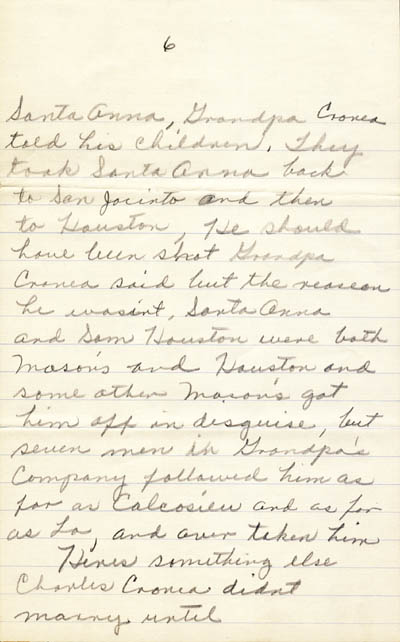 6
Santa Anna, Grandpa Cronea
told his children. They
took Santa Anna back
to San Jacinto and then
to Houston, He should
have been shot Grandpa
Cronea said but the reason
he wasint, Santa Anna
and Sam Houston were both
Mason's and Houston and
some other Mason's got
him off in disguise, but
seven men in Grandpa's
Company followed him as
far as Calcosieu and as far
as La, and over taken him
Heres something else
Charles Cronea didnt
marry until